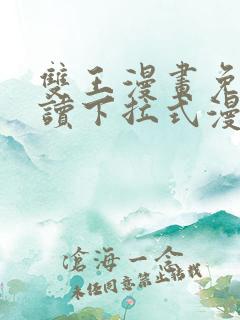 雙王漫畫免
讀下拉式漫
滄海一念
未經同意禁止轉載